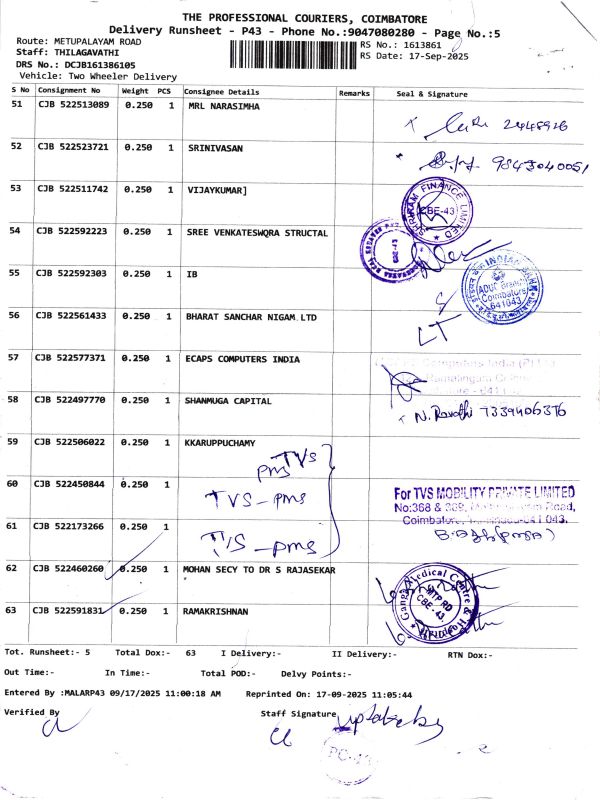 THE PROFESSIONAL COURIERS, COIMBATORE
Delivery Runsheet - P43 - Phone No.:9047080280 - Page No.:5
Route: METUPALAYAM ROAD
RS No.: 1613861
Staff: THILAGAVATHI
RS Date: 17-Sep-2025
DRS No.: DCJB161386105
Vehicle: Two Wheeler Delivery
S No Consignment No Weight PCS Consignee Details Remarks Seal & Signature
51 CJB 522513089 0.250 1 MRL NARASIMHA 2448926
52 CJB 522523721 0.250 1 SRINIVASAN 9843040051
53 CJB 522511742 0.250 1 VIJAYKUMAR]
SHRIRAM FINANCE LIMITED
CBE-43
54 CJB 522592223 0.250 1 SREE VENKATESWQRA STRUCTAL
55 CJB 522592303 0.250 1 IB
INDIAN BANK
Coimbatore
641043
56 CJB 522561433 0.250 1 BHARAT SANCHAR NIGAM.LTD
LT
57 CJB 522577371 0.250 1 ECAPS COMPUTERS INDIA
Computers India (P) Ltd
58 CJB 522497770 0.250 1 SHANMUGA CAPITAL N. Revathi 7339406376
59 CJB 522506022 0.250 1 KKARUPPUCHAMY
TVS
pms
60 CJB 522450844 0.250 1
TVS-pms
For TVS MOBILITY PRIVATE LIMITED
No:368 & 369, Road,
Coimbatore, 641 043.
61 CJB 522173266 0.250 1
TVS-pms
62 CJB 522460260 0.250 1 MOHAN SECY TO DR S RAJASEKAR
Ganga Medical Centre &
MTP RD
CBE-43.
63 CJB 522591831 0.250 1 RAMAKRISHNAN
Tot. Runsheet:- 5 Total Dox:- 63 I Delivery:- II Delivery:- RTN Dox:-
Out Time:- In Time:- Total POD:- Delvy Points:-
Entered By :MALARP43 09/17/2025 11:00:18 AM Reprinted On: 17-09-2025 11:05:44
Verified By Staff Signature
PC-43